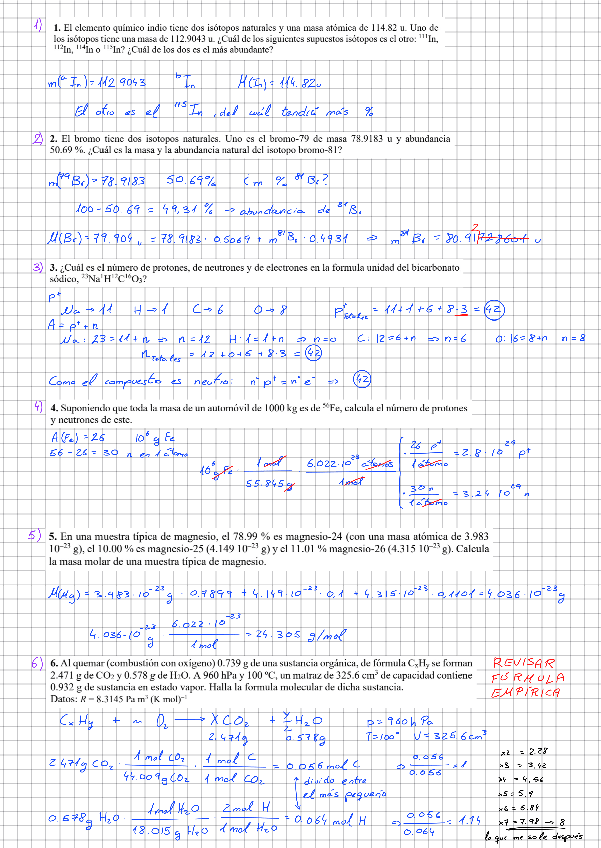 1)
1. El elemento químico indio tiene dos isótopos naturales y una masa atómica de 114.82 u. Uno de
los isótopos tiene una masa de 112.9043 u. ¿Cuál de los siguientes supuestos isótopos es el otro: ¹¹¹In,
¹¹²In, ¹¹⁴In o ¹¹⁵In? ¿Cuál de los dos es el más abundante?
m(ᵃIn) = 112.9043 ᵇIn M(In) = 114.82u
El otro es el ¹¹⁵In, del cuál tendría más %
2)
2. El bromo tiene dos isotopos naturales. Uno es el bromo-79 de masa 78.9183 u y abundancia
50.69 %. ¿Cuál es la masa y la abundancia natural del isotopo bromo-81?
m(⁷⁹Br) = 78.9183 50.69% ¿m % ⁸¹Br?
100 - 50.69 = 49,31 % → abundancia de ⁸¹Br
M(Br) = 79.904 u = 78.9183 · 0.5069 + m⁸¹Br · 0.4931 ⇒ m⁸¹Br = 80.917 u
3)
3. ¿Cuál es el número de protones, de neutrones y de electrones en la formula unidad del bicarbonato
sódico, ²³Na¹H¹²C¹⁶O₃?
p⁺
Na → 11 H → 1 C → 6 O → 8 p⁺Totales = 11+1+6+8·3 = 42
A = p⁺ + n
Na: 23 = 11 + n ⇒ n = 12 H: 1 = 1 + n ⇒ n = 0 C: 12 = 6 + n ⇒ n = 6 O: 16 = 8 + n n = 8
n Totales = 12 + 0 + 6 + 8·3 = 42
Como el compuesto es neutro: nº p⁺ = nº e⁻ ⇒ 42
4)
4. Suponiendo que toda la masa de un automóvil de 1000 kg es de ⁵⁶Fe, calcula el número de protones
y neutrones de este.
A(Fe) = 26 10⁶ g Fe
56 - 26 = 30 n en 1 átomo
10⁶ g Fe · 1 mol / 55.845 g · 6.022·10²³ átomos / 1 mol
· 26 p⁺ / 1 átomo = 2.8 · 10²⁹ p⁺
· 30 n / 1 átomo = 3.24 10²⁹ n
5)
5. En una muestra típica de magnesio, el 78.99 % es magnesio-24 (con una masa atómica de 3.983
10⁻²³ g), el 10.00 % es magnesio-25 (4.149 10⁻²³ g) y el 11.01 % magnesio-26 (4.315 10⁻²³ g). Calcula
la masa molar de una muestra típica de magnesio.
M(Mg) = 3.983 · 10⁻²³ g · 0.7899 + 4.149 · 10⁻²³ · 0.1 + 4.315 · 10⁻²³ · 0,1101 = 4.036 · 10⁻²³ g
4.036 · 10⁻²³ g · 6.022 · 10⁻²³ / 1 mol = 24.305 g/mol
6)
6. Al quemar (combustión con oxígeno) 0.739 g de una sustancia orgánica, de fórmula CₓHᵧ se forman
2.471 g de CO₂ y 0.578 g de H₂O. A 960 hPa y 100 ºC, un matraz de 325.6 cm³ de capacidad contiene
0.932 g de sustancia en estado vapor. Halla la formula molecular de dicha sustancia.
Datos: R = 8.3145 Pa m³ (K mol)⁻¹
REVISAR
FÓRMULA
EMPÍRICA
CₓHᵧ + n O₂ → X CO₂ + y/2 H₂O p = 960 hPa
2.471g 0.578g T = 100° V = 325.6 cm³
2.471 g CO₂ · 1 mol CO₂ / 44.009 g CO₂ · 1 mol C / 1 mol CO₂ = 0.056 mol C ⇒ 0.056 / 0.056 = 1
↕ divido entre
el más pequeño
0.578 g H₂O · 1 mol H₂O / 18.015 g H₂O · 2 mol H / 1 mol H₂O = 0.064 mol H ⇒ 0.056 / 0.064 = 1.14
x2 = 2.28
x3 = 3,42
x4 = 4,56
x5 = 5,7
x6 = 6.84
x7 = 7.98 → 8
lo que me sale después